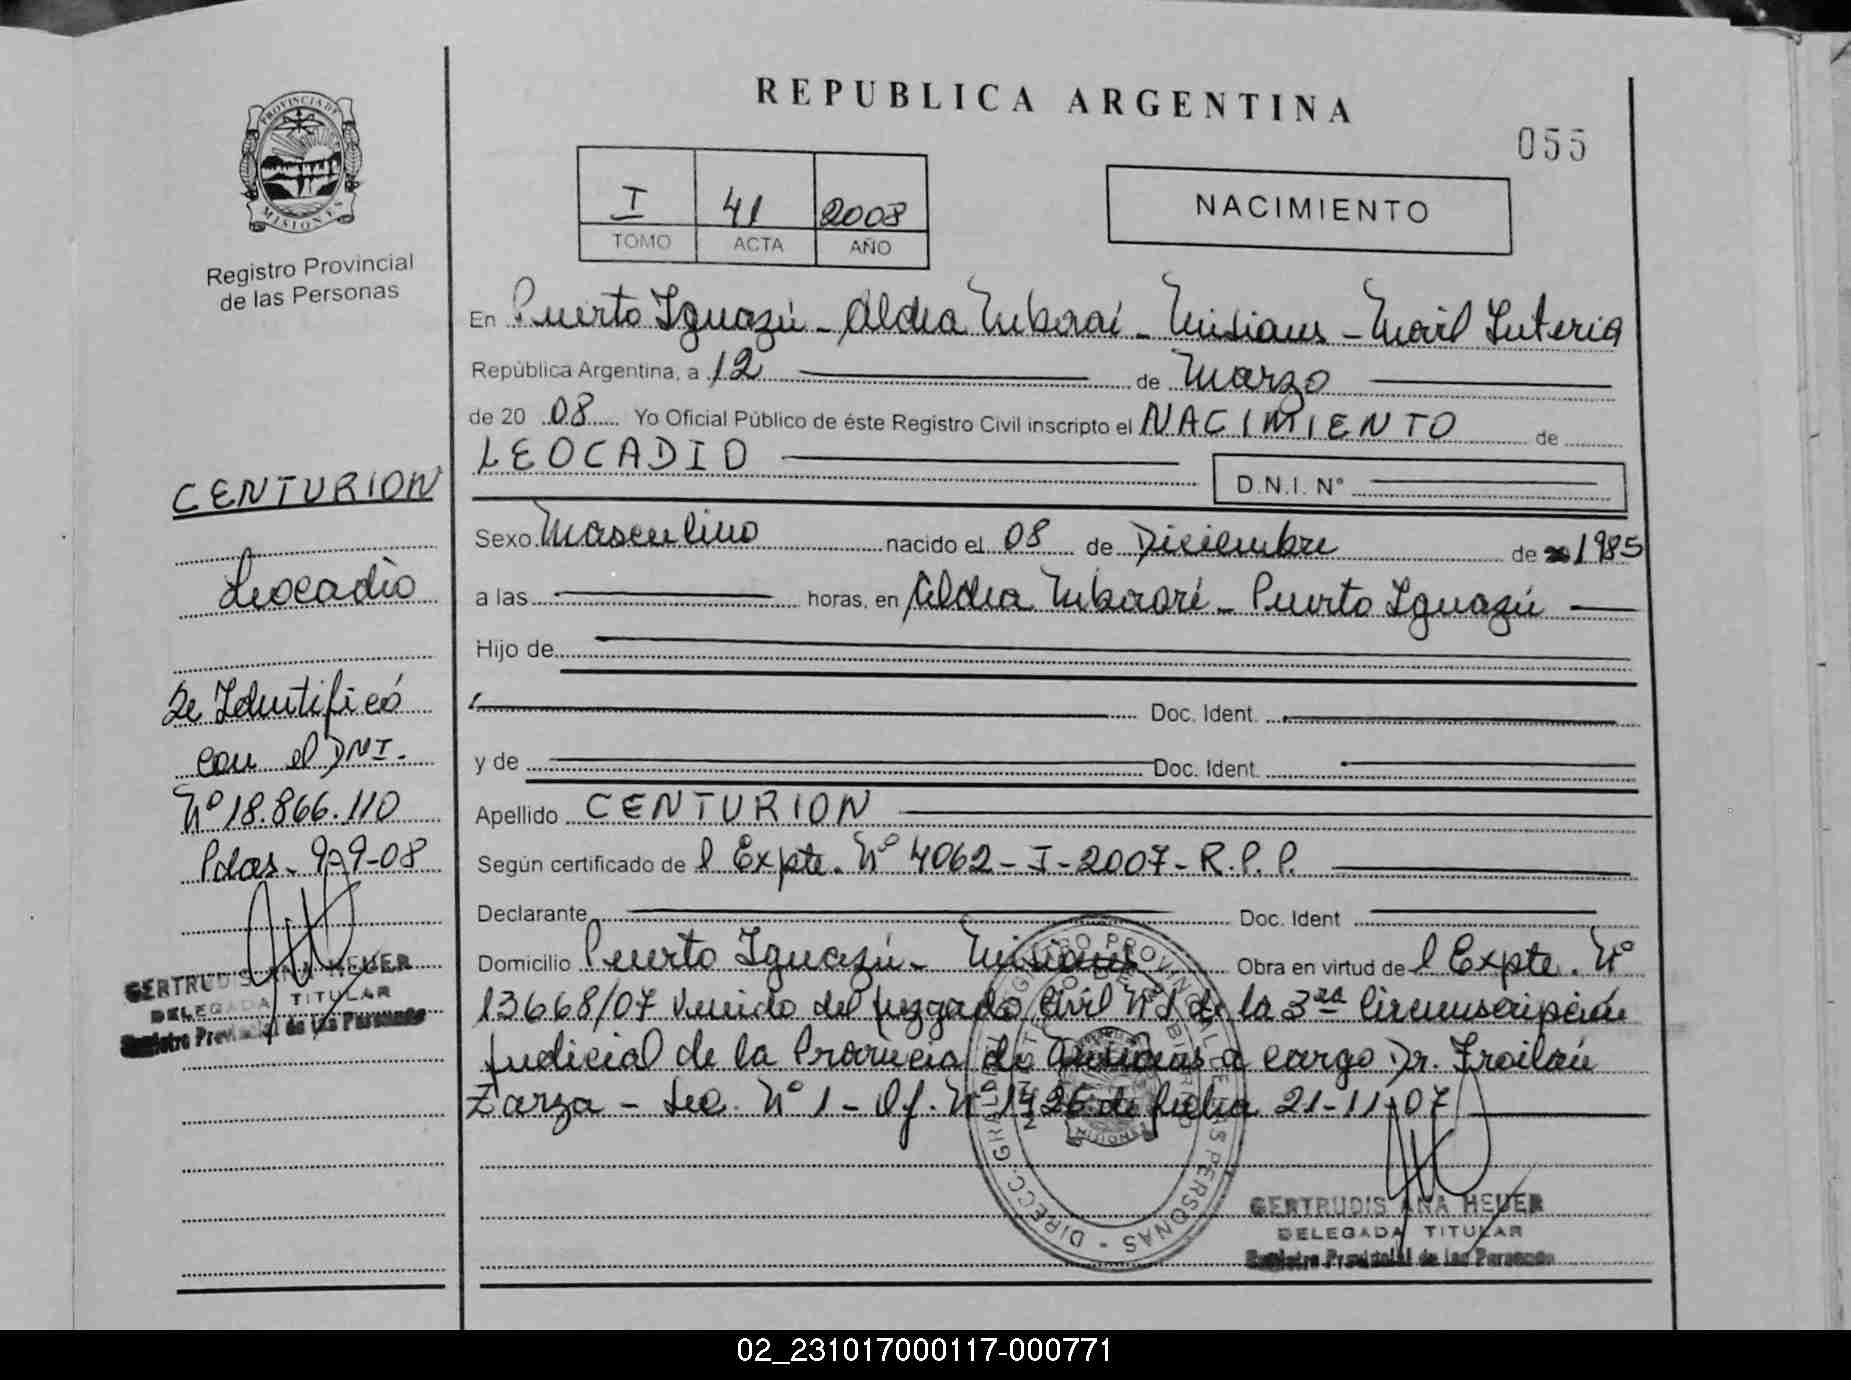 REPUBLICA ARGENTINA
055
PROVINCIA DE
MISIONES
Registro Provincial
de las Personas
I 41 2008
TOMO ACTA AÑO
NACIMIENTO
En Puerto Iguazú - Aldea - Misiones - Movil
República Argentina, a 12 de Marzo
de 20 08 Yo Oficial Público de éste Registro Civil inscripto el NACIMIENTO de
LEOCADIO
D.N.I. N°
Sexo Masculino nacido el 08 de Diciembre de 1985
a las horas, en Aldea - Puerto Iguazú
Hijo de
Doc. Ident.
y de Doc. Ident.
Apellido CENTURION
Según certificado de l Expte. N° 4062-I-2007-R.P.P.
Declarante Doc. Ident
Domicilio Puerto Iguazú - Misiones Obra en virtud de l Expte. N°
13668/07 venido del juzgado Civil N°1 de la 3ra Circunscripción
judicial de la Provincia de Misiones a cargo Dr. Froilán
Zarza - Sec. N° 1 - Of. N° 1426 de fecha 21-11-07
GERTRUDIS ANA HEUER
DELEGADA TITULAR
Registro Provincial de las Personas
CENTURION
Leocadio
Se Identificó
con el DNI.
N° 18.866.110
Pdas. 9-9-08
GERTRUDIS ANA HEUER
DELEGADA TITULAR
Registro Provincial de las Personas
02_231017000117-000771